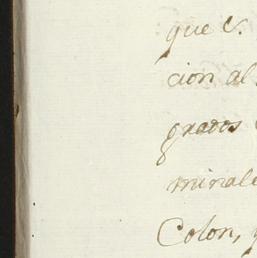 que c.
cion al
grados
mirale
Colon, y